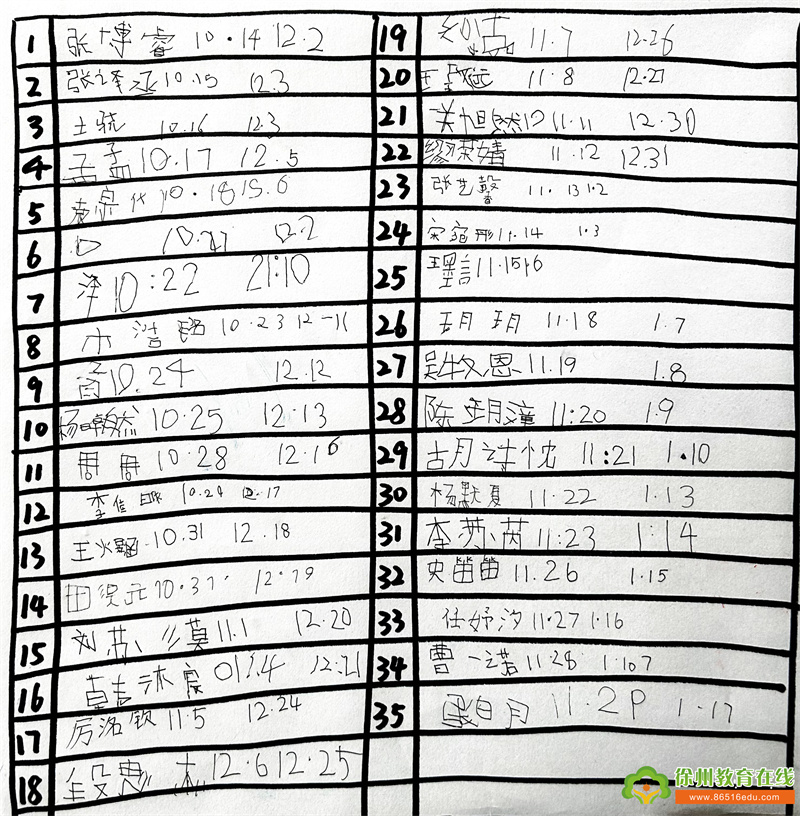 1 张博睿 10.14 12.2
2 张译丞 10.15 12.3
3 土琉 10.16 12.3
4 孟孟 10.17 12.5
5 10.18 15.6
6 口 10.21 12.2
7 泽 10:22 21:10
8 浩铭 10.23 12-11
9 10.24 12.12
10 杨朝然 10.25 12.13
11 周周 10.28 12.16
12 李佳 10.29 12.17
13 王 10.31 12.18
14 田 10.31 12.19
15 刘苏 莫 11.1 12.20
16 沐宸 011.4 12.21
17 厉洛钦 11.5 12.24
18 段 12.6 12.25
19 11.7 12.26
20 11.8 12.27
21 关旭然 12 11.11 12.30
22 缪菜婧 11.12 12.31
23 张艺馨 11.13 1.2
24 宋宥彤 11.14 1.3
25 11.15 1.6
26 玥玥 11.18 1.7
27 吴牧恩 11.19 1.8
28 陈玥潼 11:20 1.9
29 古月 忱 11:21 1.10
30 杨默夏 11.22 1.13
31 李苏芮 11:23 1:14
32 史笛笛 11.26 1.15
33 任妤汐 11.27 1.16
34 曹一诺 11.28 1.107
35 月 11.2P 1.17
徐州教育在线
www.86516edu.com